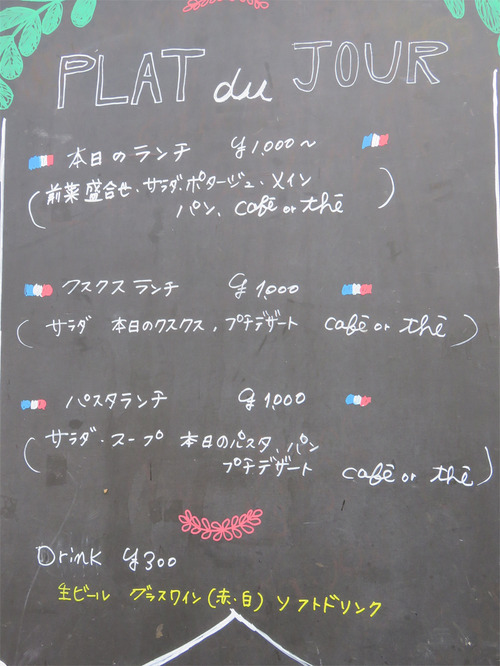 PLAT du JOUR
本日のランチ ¥1,000～
(前菜盛合せ、サラダ、ポタージュ、メイン
パン、café or thé)
クスクスランチ ¥1,000
(サラダ 本日のクスクス、プチデザート café or thé)
パスタランチ ¥1,000
(サラダ・スープ 本日のパスタ、パン
プチデザート café or thé)
Drink ¥300
生ビール グラスワイン(赤・白) ソフトドリンク